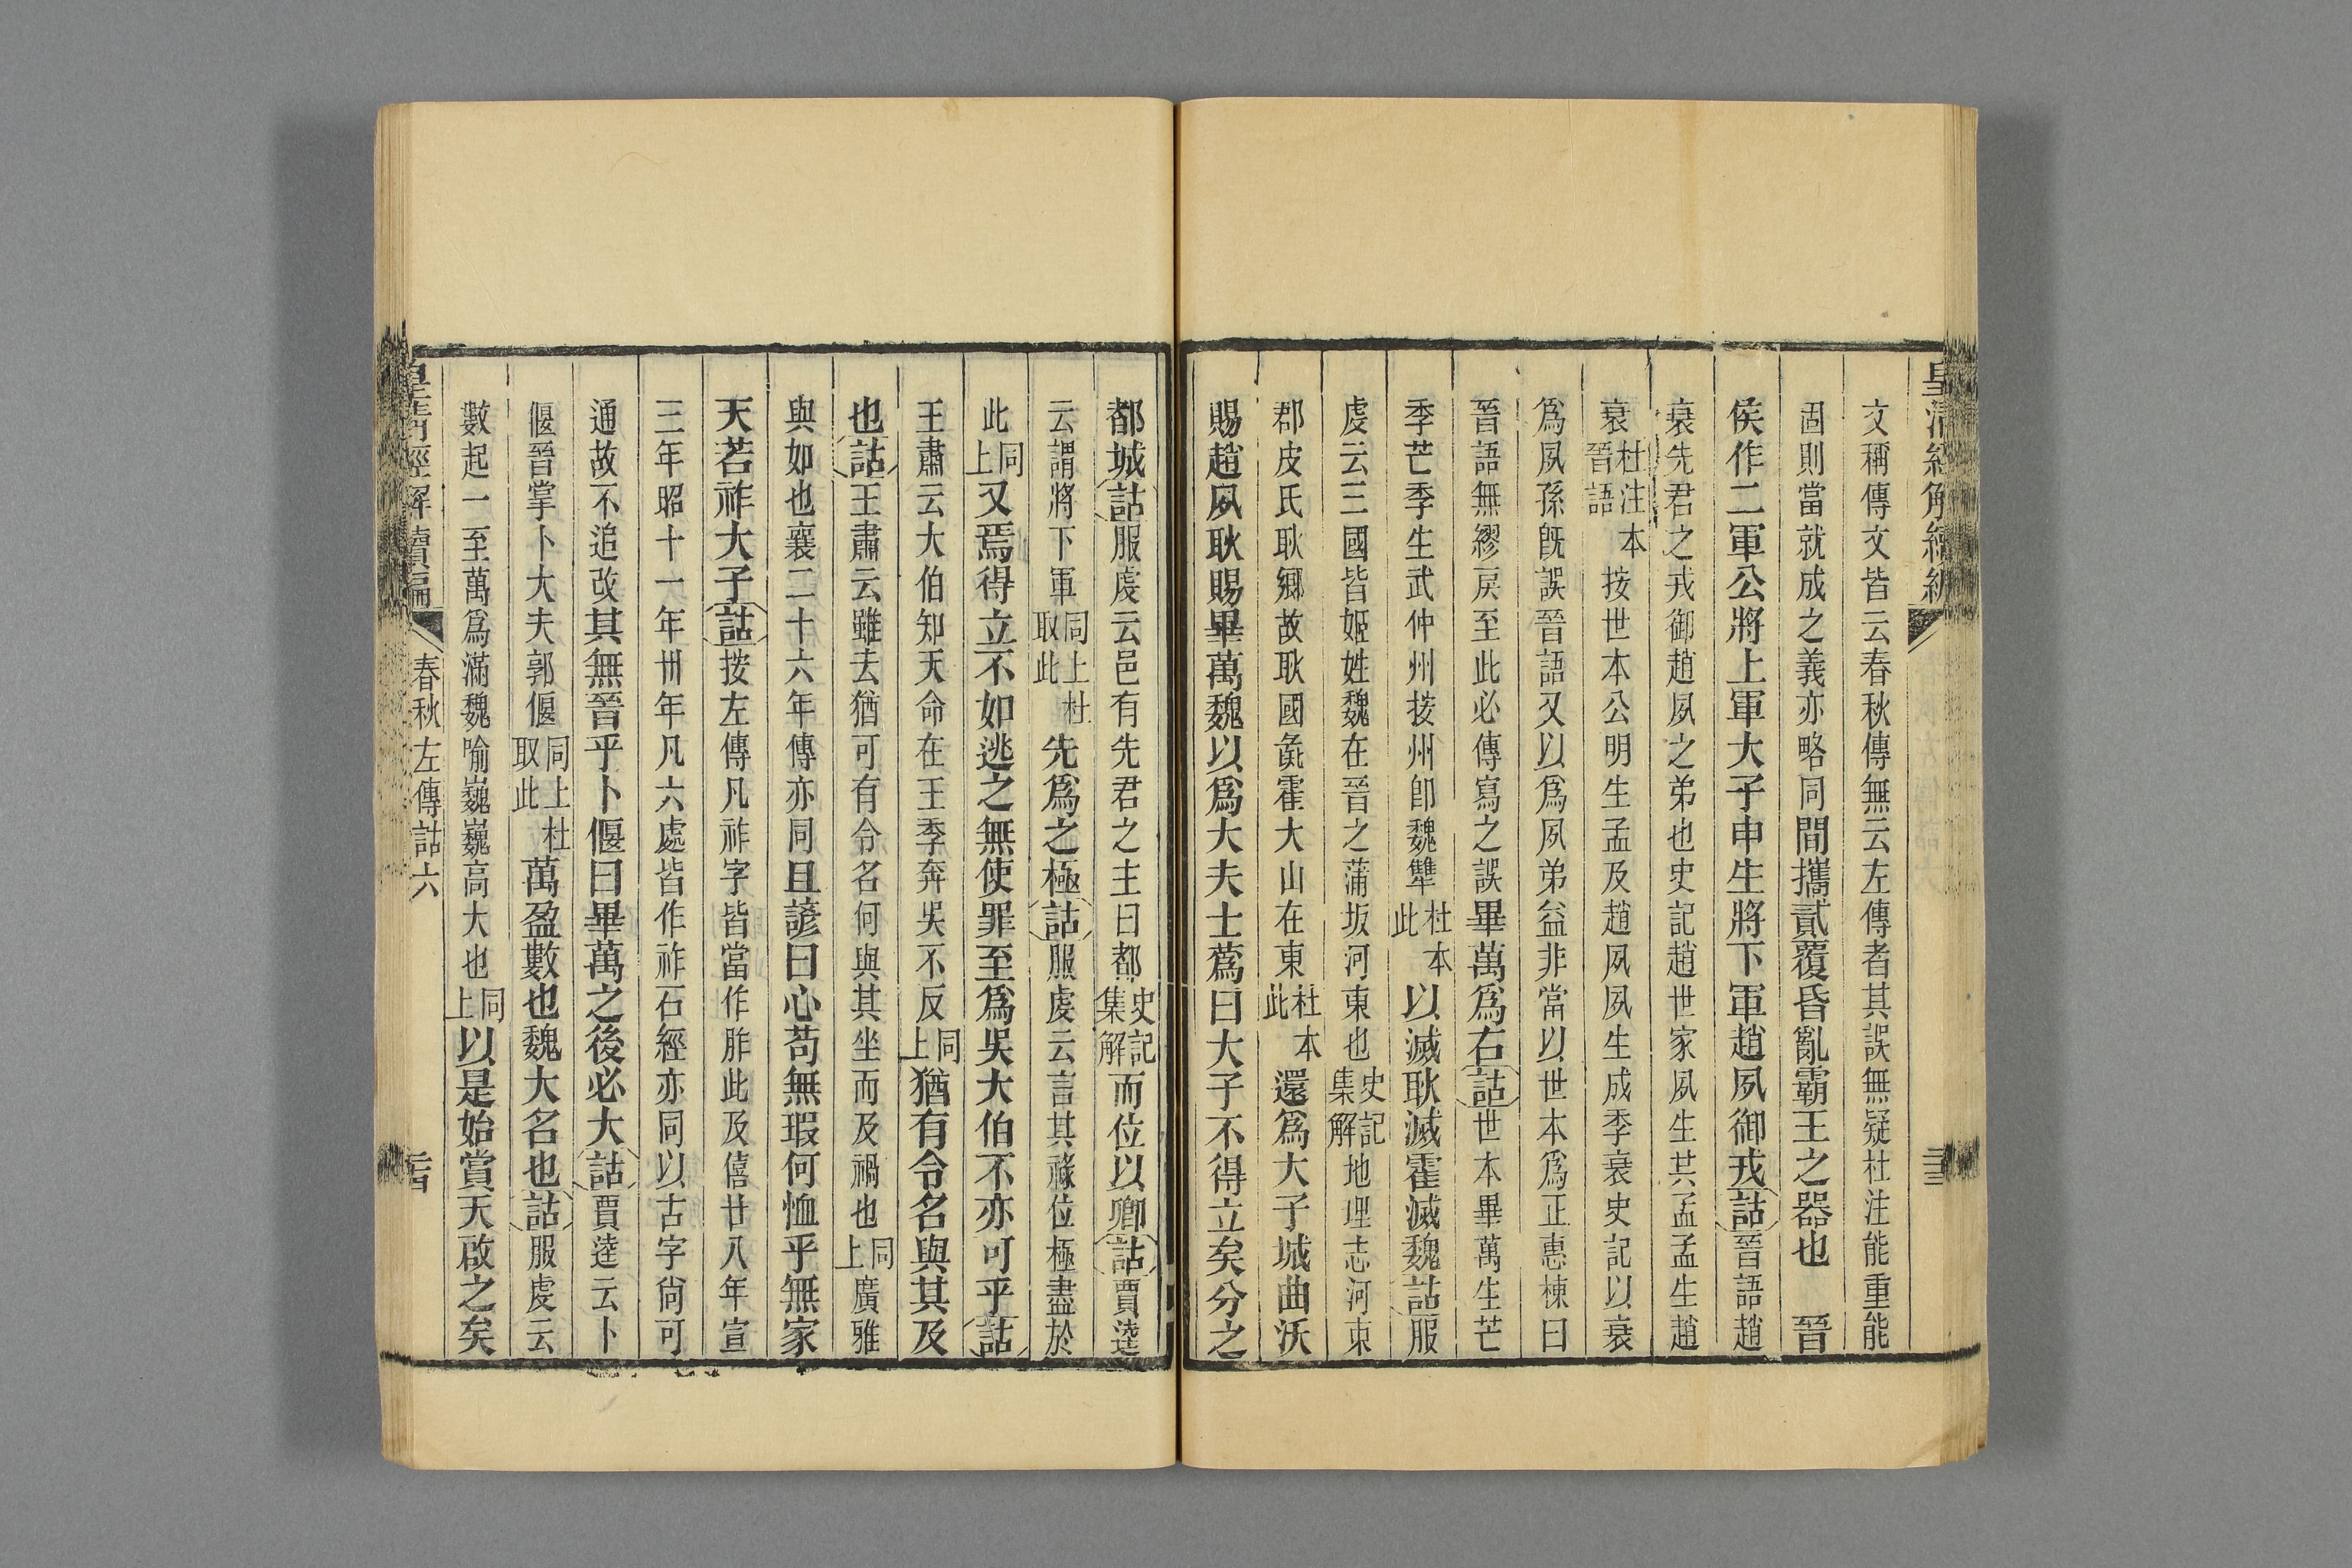 皇清經解續編
文稱傳文皆云春秋傳無云左傳者其誤無疑杜注能重能
固則當就成之義亦略同間攜貳覆昏亂霸王之器也 晉
侯作二軍公將上軍大子申生將下軍趙夙御戎詁晉語趙
衰先君之戎御趙夙之弟也史記趙世家夙生共孟孟生趙
衰杜注本晉語按世本公明生孟及趙夙夙生成季衰史記以衰
爲夙孫旣誤晉語又以爲夙弟益非當以世本爲正惠棟曰
晉語無繆戾至此必傳寫之誤畢萬爲右詁世本畢萬生芒
季芒季生武仲州按州卽魏犨杜本此以滅耿滅霍滅魏詁服
虔云三國皆姬姓魏在晉之蒲坂河東也史記集解地理志河東
郡皮氏耿鄉故耿國彘霍大山在東杜本此還爲大子城曲沃
賜趙夙耿賜畢萬魏以爲大夫士蔿曰大子不得立矣分之
都城詁服虔云邑有先君之主曰都史記集解而位以卿詁賈逵
云謂將下軍同上杜取此先爲之極詁服虔云言其祿位極盡於
此同上又焉得立不如逃之無使罪至爲吳大伯不亦可乎詁
王肅云大伯知天命在王季奔吳不反同上猶有令名與其及
也詁王肅云雖去猶可有令名何與其坐而及禍也同上廣雅
與如也襄二十六年傳亦同且諺曰心苟無瑕何恤乎無家
天若祚大子詁按左傳凡祚字皆當作胙此及僖廿八年宣
三年昭十一年卅年凡六處皆作祚石經亦同以古字尙可
通故不追改其無晉乎卜偃曰畢萬之後必大詁賈逵云卜
偃晉掌卜大夫郭偃同上杜取此萬盈數也魏大名也詁服虔云
數起一至萬爲滿魏喻巍巍高大也同上以是始賞天啟之矣
皇清經解續編 春秋左傳詁六